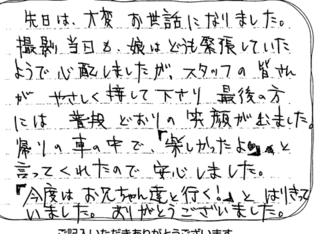 先日は、大変お世話になりました。
撮影当日も、娘はとても緊張していた
ようで心配しましたが、スタッフの皆さん
がやさしく接して下さり最後の方
には普段どおりの笑顔が出ました。
帰りの車の中で、「楽しかったよ」と
言ってくれたので安心しました。
「今度はお兄ちゃん達と行く!」とはりきって
いました。ありがとうございました。
ご記入いただきありがとうございます